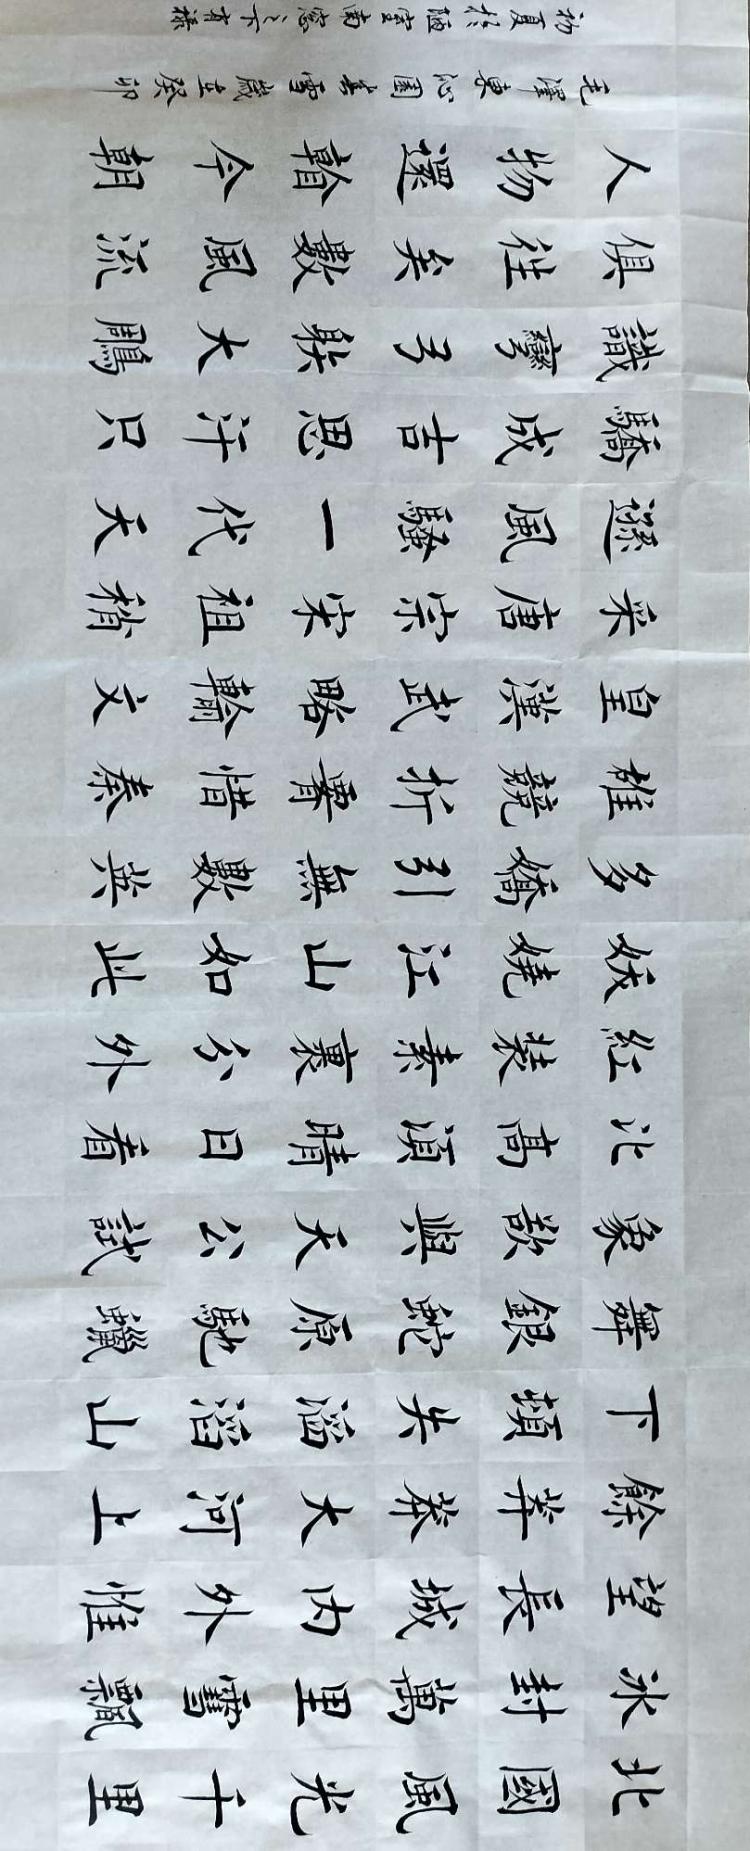 北國風光千里
冰封萬里雪飄
望長城內外惟
餘莽莽大河上
下頓失滔滔山
舞銀蛇原馳蠟
象欲與天公試
比高須晴日看
紅裝素裹分外
妖嬈江山如此
多嬌引無數英
雄競折腰惜秦
皇漢武略輸文
采唐宗宋祖稍
遜風騷一代天
驕成吉思汗只
識彎弓射大鵰
俱往矣數風流
人物還看今朝
毛澤東沁園春雪歲在癸卯
初夏於陋室南窓之下有祿